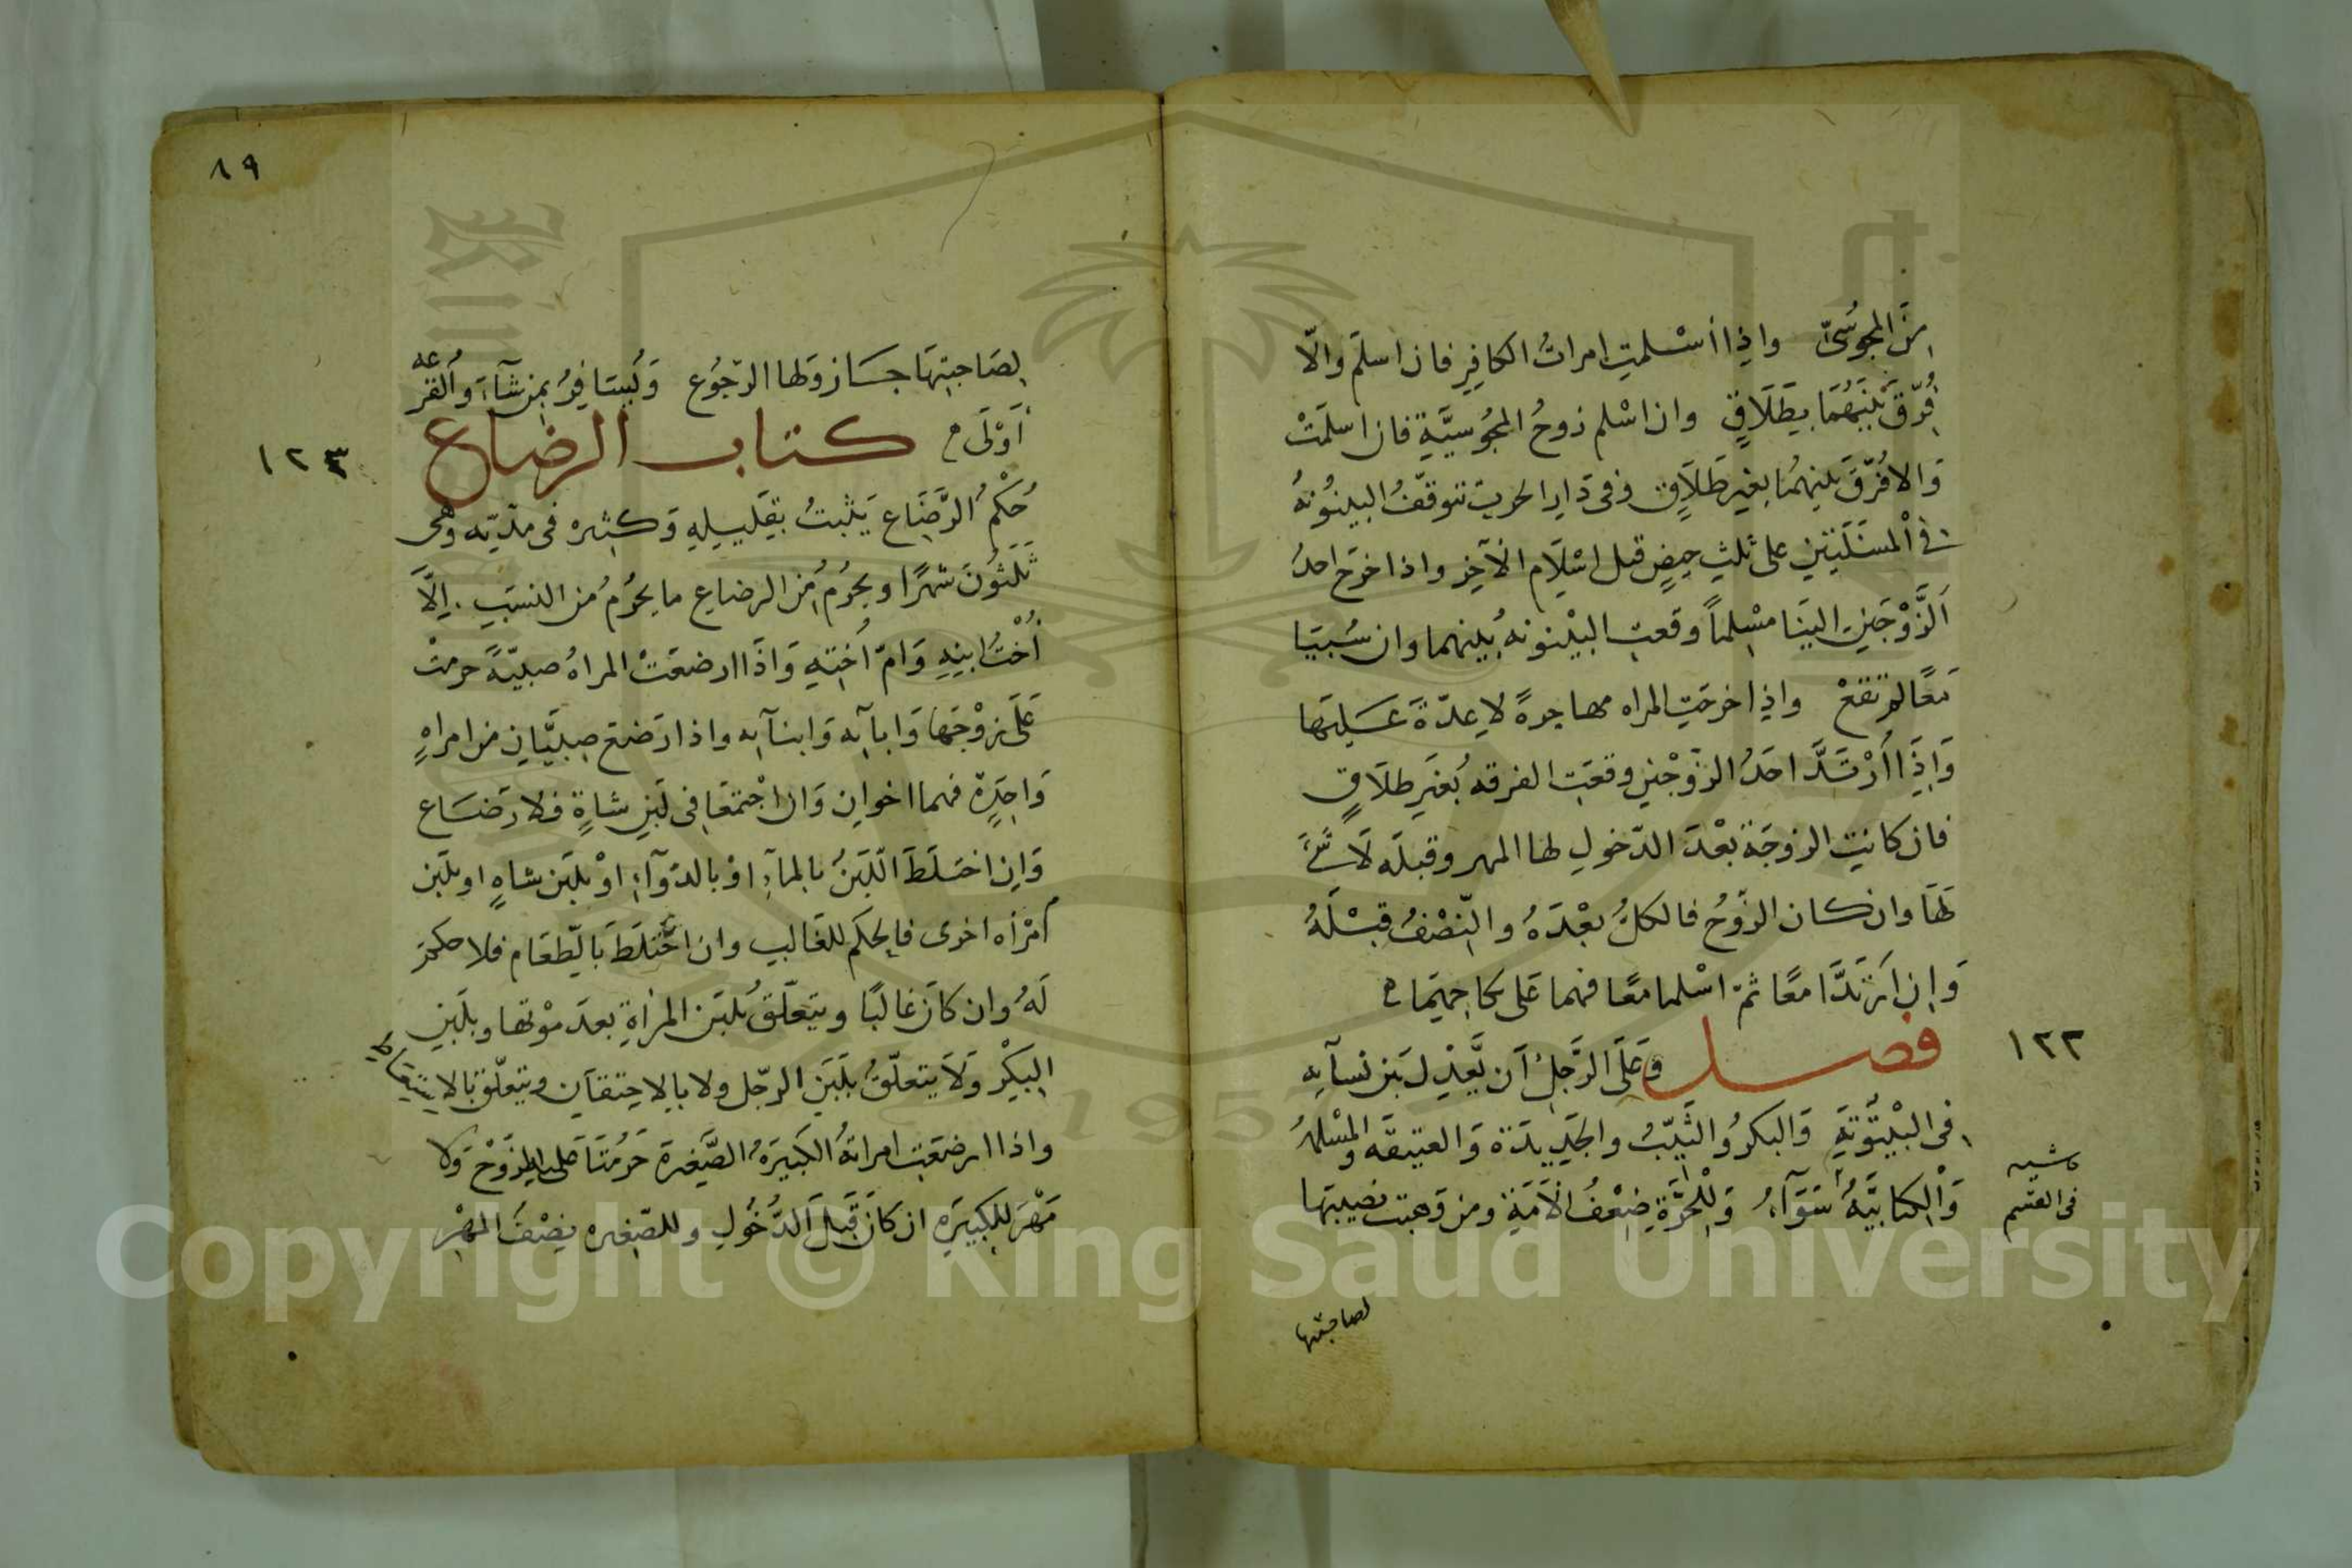 مِنَ المجوسىّ واذِا أسْلمتِ امراتُ الكافِرِ فان اسلمَ والّا
فُرّقَ بَيْنَهُمَا بِطَلَاقٍ وان اسْلم زوجُ المجُوسيَّةِ فان اسلمَتْ
وَالا فُرّقَ بَينهمُا بغيرِ طَلَاقٍ وفى دَارِ الحربِ تتوقّفُ البينُونهُ
فى المسئَلَتَيْنِ على ثلثِ حيضٍ قبل اسْلَامِ الآخِرِ واذا خرَج احدُ
الَزَّوْجَينِ الينَا مسْلِماً وقعتِ البيْنونهُ بُينهما وان سُبيَا
مَعًا لم تقعْ واذِا خرجَتِ المراه مهاجرةً لا عِدّةَ عَليهَا
وَاِذَا ارْتَدَّ احَدُ الزّوْجَينِ وقعَتِ الفرقه بُغيَرِ طلَاقٍ
فان كانتِ الزوجَة بعْدَ الدّخولِ لها المهر وقبلَه لَا شَئَ
لهَا وان كان الزّوجُ فالكلُّ بعْدَهُ والنّصْفُ قبْلَهُ
وَاِنِ ارتَدَّا معًا ثمّ اسْلما معًا فهما عَلى نكاحِهِمَا
١٢٢
فصل وَعَلَى الرَّجلِ اَن يَّعدِلَ بَين نسآيهِ
فى البيْتوتَةِ وَالبكرُ والثَيّبُ والجَدِيدَة وَالعتيقه والمسْلمهُ
وَالكتابيَّهُ سَوَآءُ وَلِلْحُرَّةِ ضِعْفُ الاَمَةِ ومن وَهبت نصيبَهَا
فى القسم
لصاحبتها
٨٩
لِصَاحبتِهَا جَازَ وَلها الرّجُوع وَيُسَافِرُ بمن شآءَ وَالقُرعه
اَوْلَى كتاب الرضاع
١٢٣
حُكْمُ الرَّضَاعِ يَثبتُ بقَليلِهِ وَكثيره فى مدّتِه وَهى
ثلَثُونَ شهرًا ويحرُمُ مِن الرضاعِ ما يحرُمُ من النسَبِ اِلّاَ
اُخْتُ ابنِهِ وَامّ اُختِهِ وَاذَا ارضعَتْ المراهُ صبيّةً حرمتْ
عَلَى زوْجِهَا وَابآيِه وَابنآيِه واذا رَضَعَ صبيّانِ من امراهٍ
وَاحِدَةٍ فهما اخوانِ وَانِ اجْتمعَا فِى لَبَنِ شاةٍ فلا رَضَاع
وَاِنِ اختلَطَ الّلبَنُ بالمآءِ اوْ بالدّوآءِ اوْ بلَبن شاهٍ او بلَبن
امْرَأه اخرى فالحكم للغَالبِ وان اخْتلَطَ بَالّطعَام فلا حكمَ
لَهُ وان كاَنَ غالبًا ويتعلّقُ بلبَن المرْاةِ بعدَ موْتها وبلَبَنِ
البِكْرِ وَلَا يتعلّقُ بلَبَنِ الرّجل ولا بالاحتقان ويتعلّق بالاستعاط
واذا ارضعَتِ امراتهُ الكَبيَرهُ الصَّغيرةَ حَرُمَتَا على الزَوْج وَلا
مَهْرَ لِلكبيرَهِ ان كاَنَ قَبلَ الدُّخُولِ وللصّغيره نِصْفُ المهْرِ
Copyright © King Saud University
1957